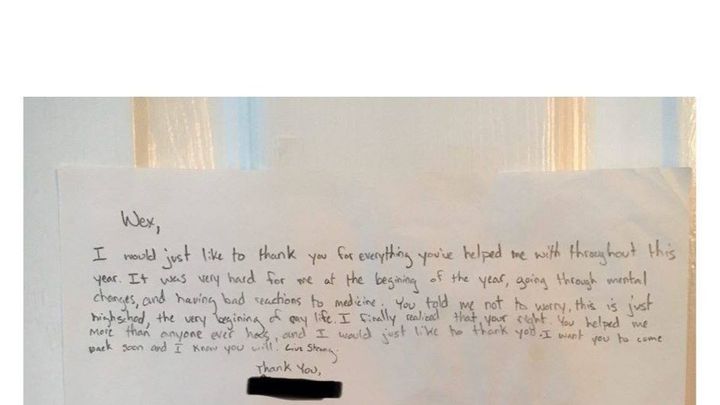 Wex,
I would just like to thank you for everything you've helped me with throughout this
year. It was very hard for me at the begining of the year, going through mental
changes, and having bad reactions to medicine. You told me not to worry, this is just
highschool, the very begining of my life. I finally realized that, your right. You helped me
more than anyone ever has, and I would just like to thank you. I want you to come
back soon and I know you will. Live Strong.
Thank You,